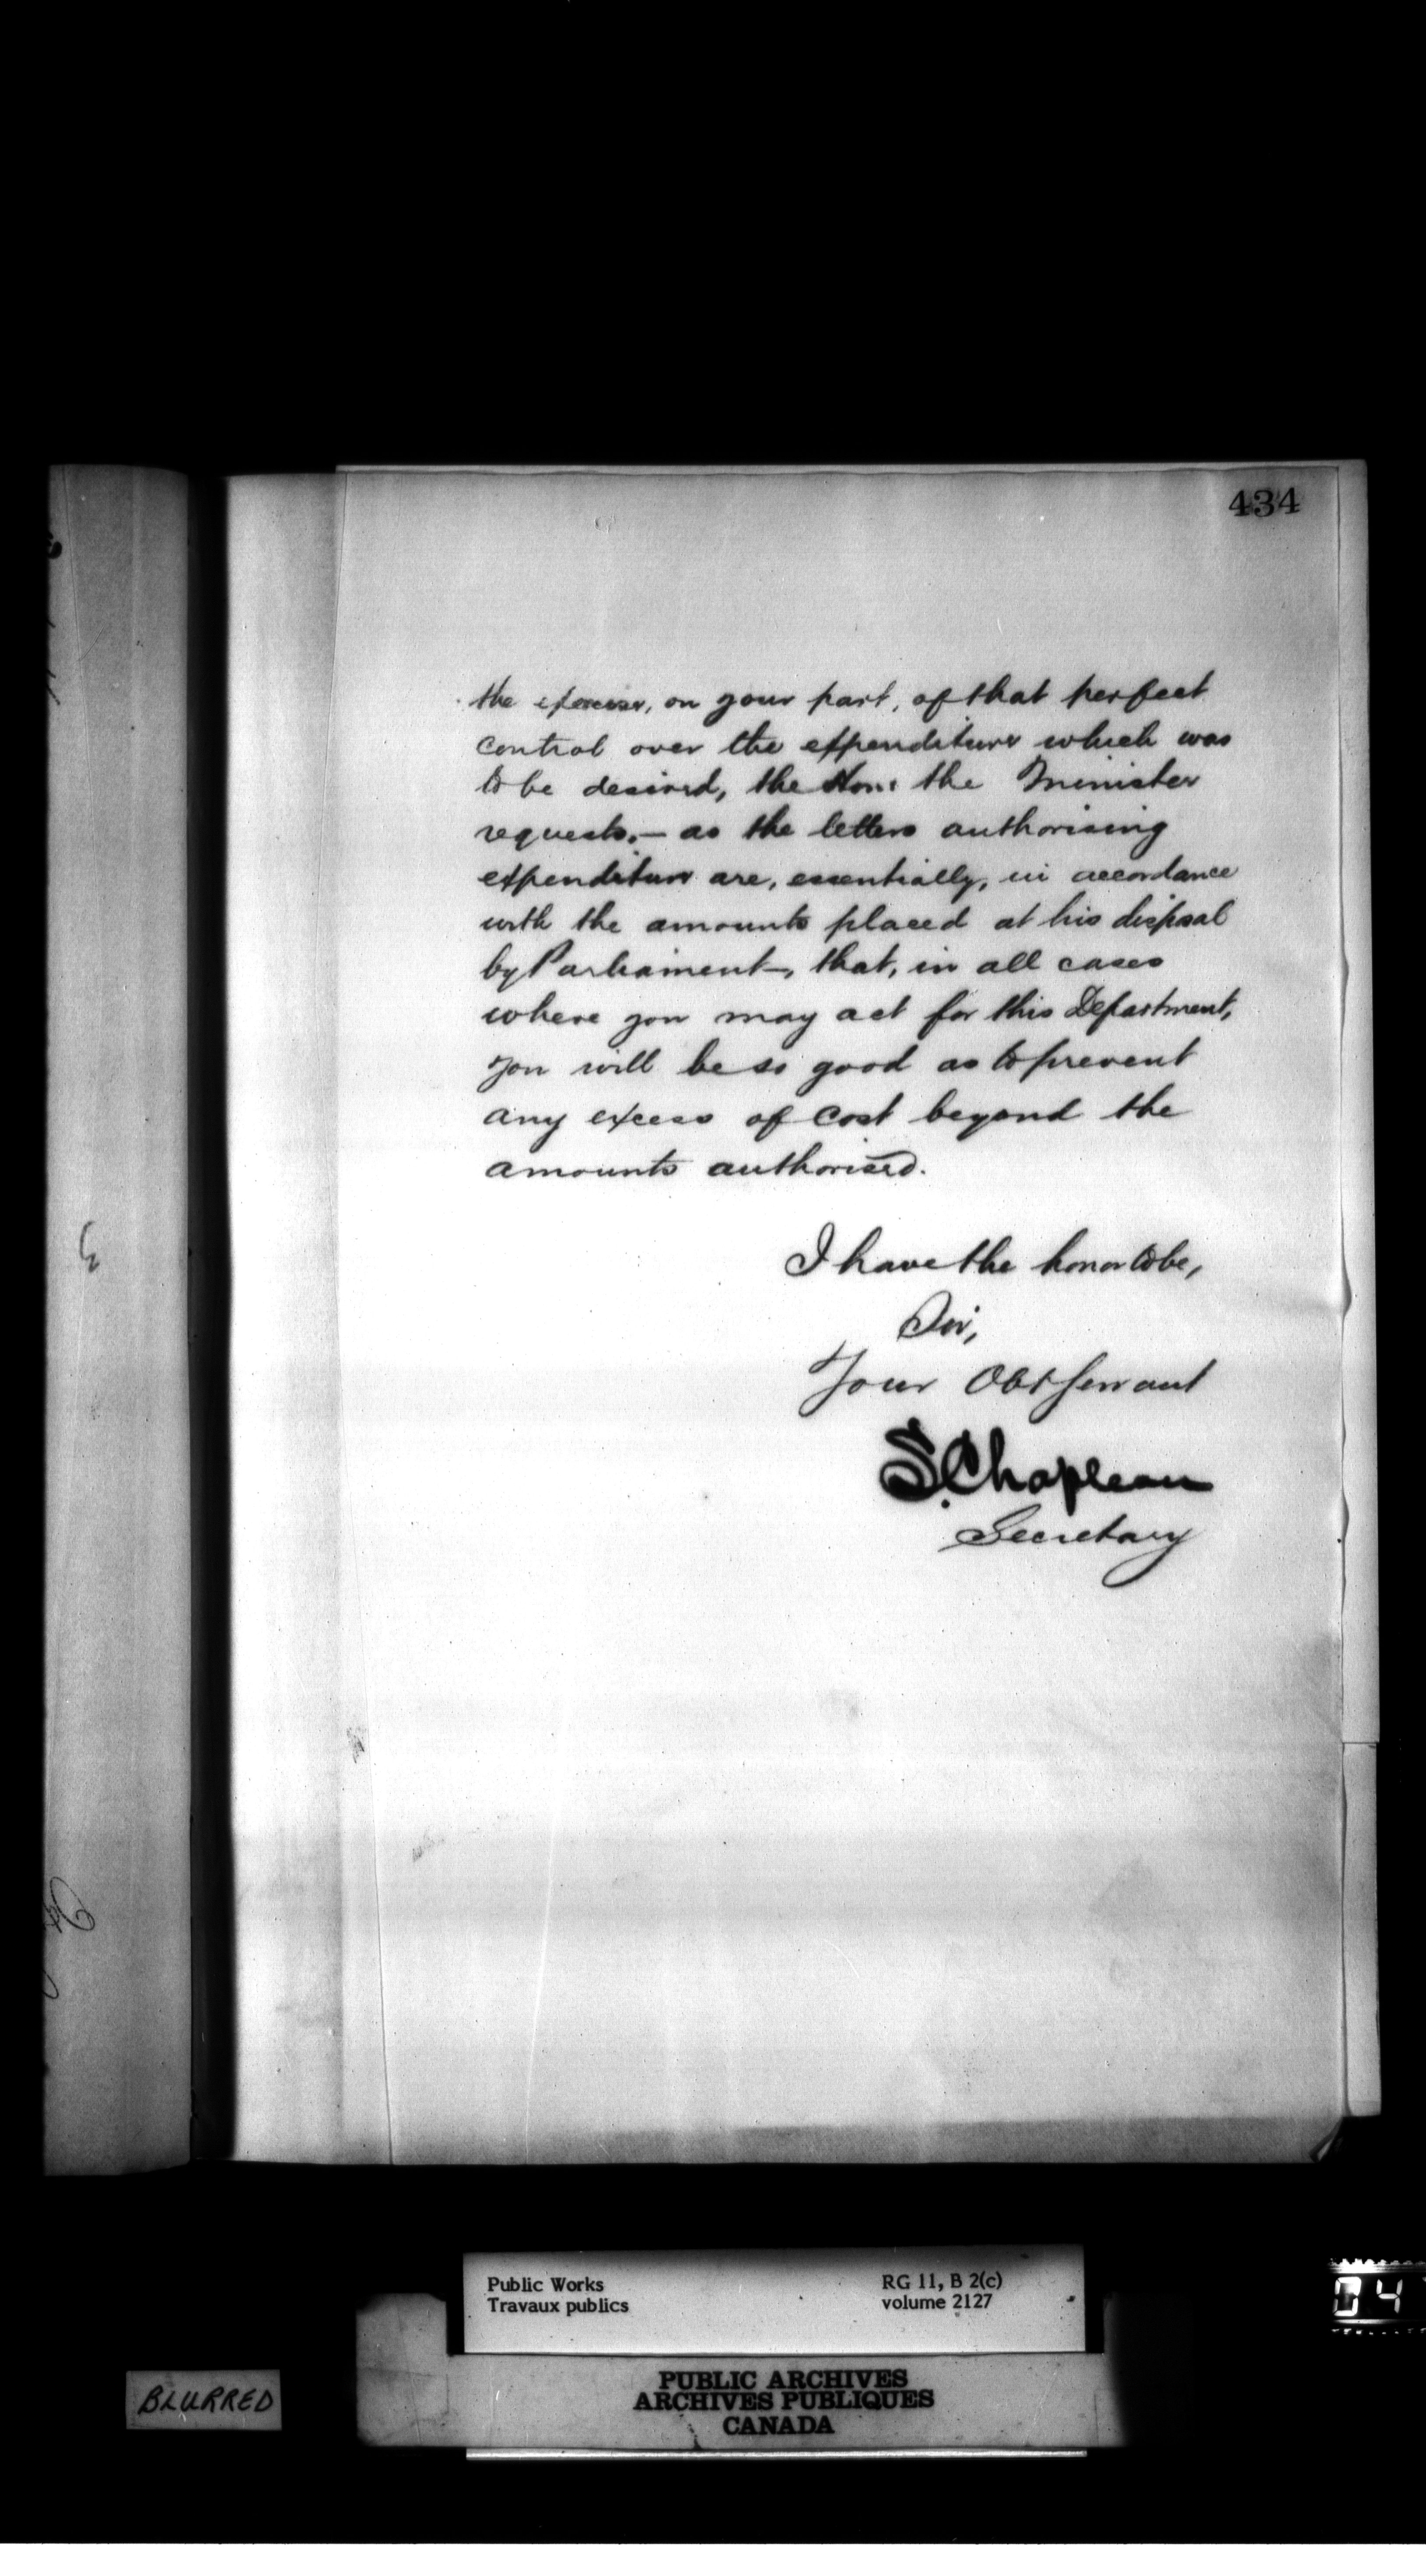 434
the exercise, on your part, of that perfect
control over the expenditure which was
to be desired, the Hon: the Minister
requests,— as the letters authorising
expenditure are, essentially, in accordance
with the amounts placed at his disposal
by Parliament—, that, in all cases
where you may act for this Department,
you will be so good as to prevent
any excess of cost beyond the
amounts authorised.
I have the honor to be,
Sir,
Your Obt Servant
S. Chapleau
Secretary
Public Works
Travaux publics
RG 11, B 2(c)
volume 2127
PUBLIC ARCHIVES
ARCHIVES PUBLIQUES
CANADA
BLURRED
04